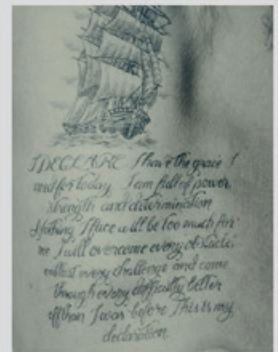 I DECLARE I have the grace I
need for today. I am full of power
strength and determination
Nothing I face will be too much for
me I will overcome every obstacle
outlast every challenge and come
through every difficulty better
off than I was before This is my
declaration.